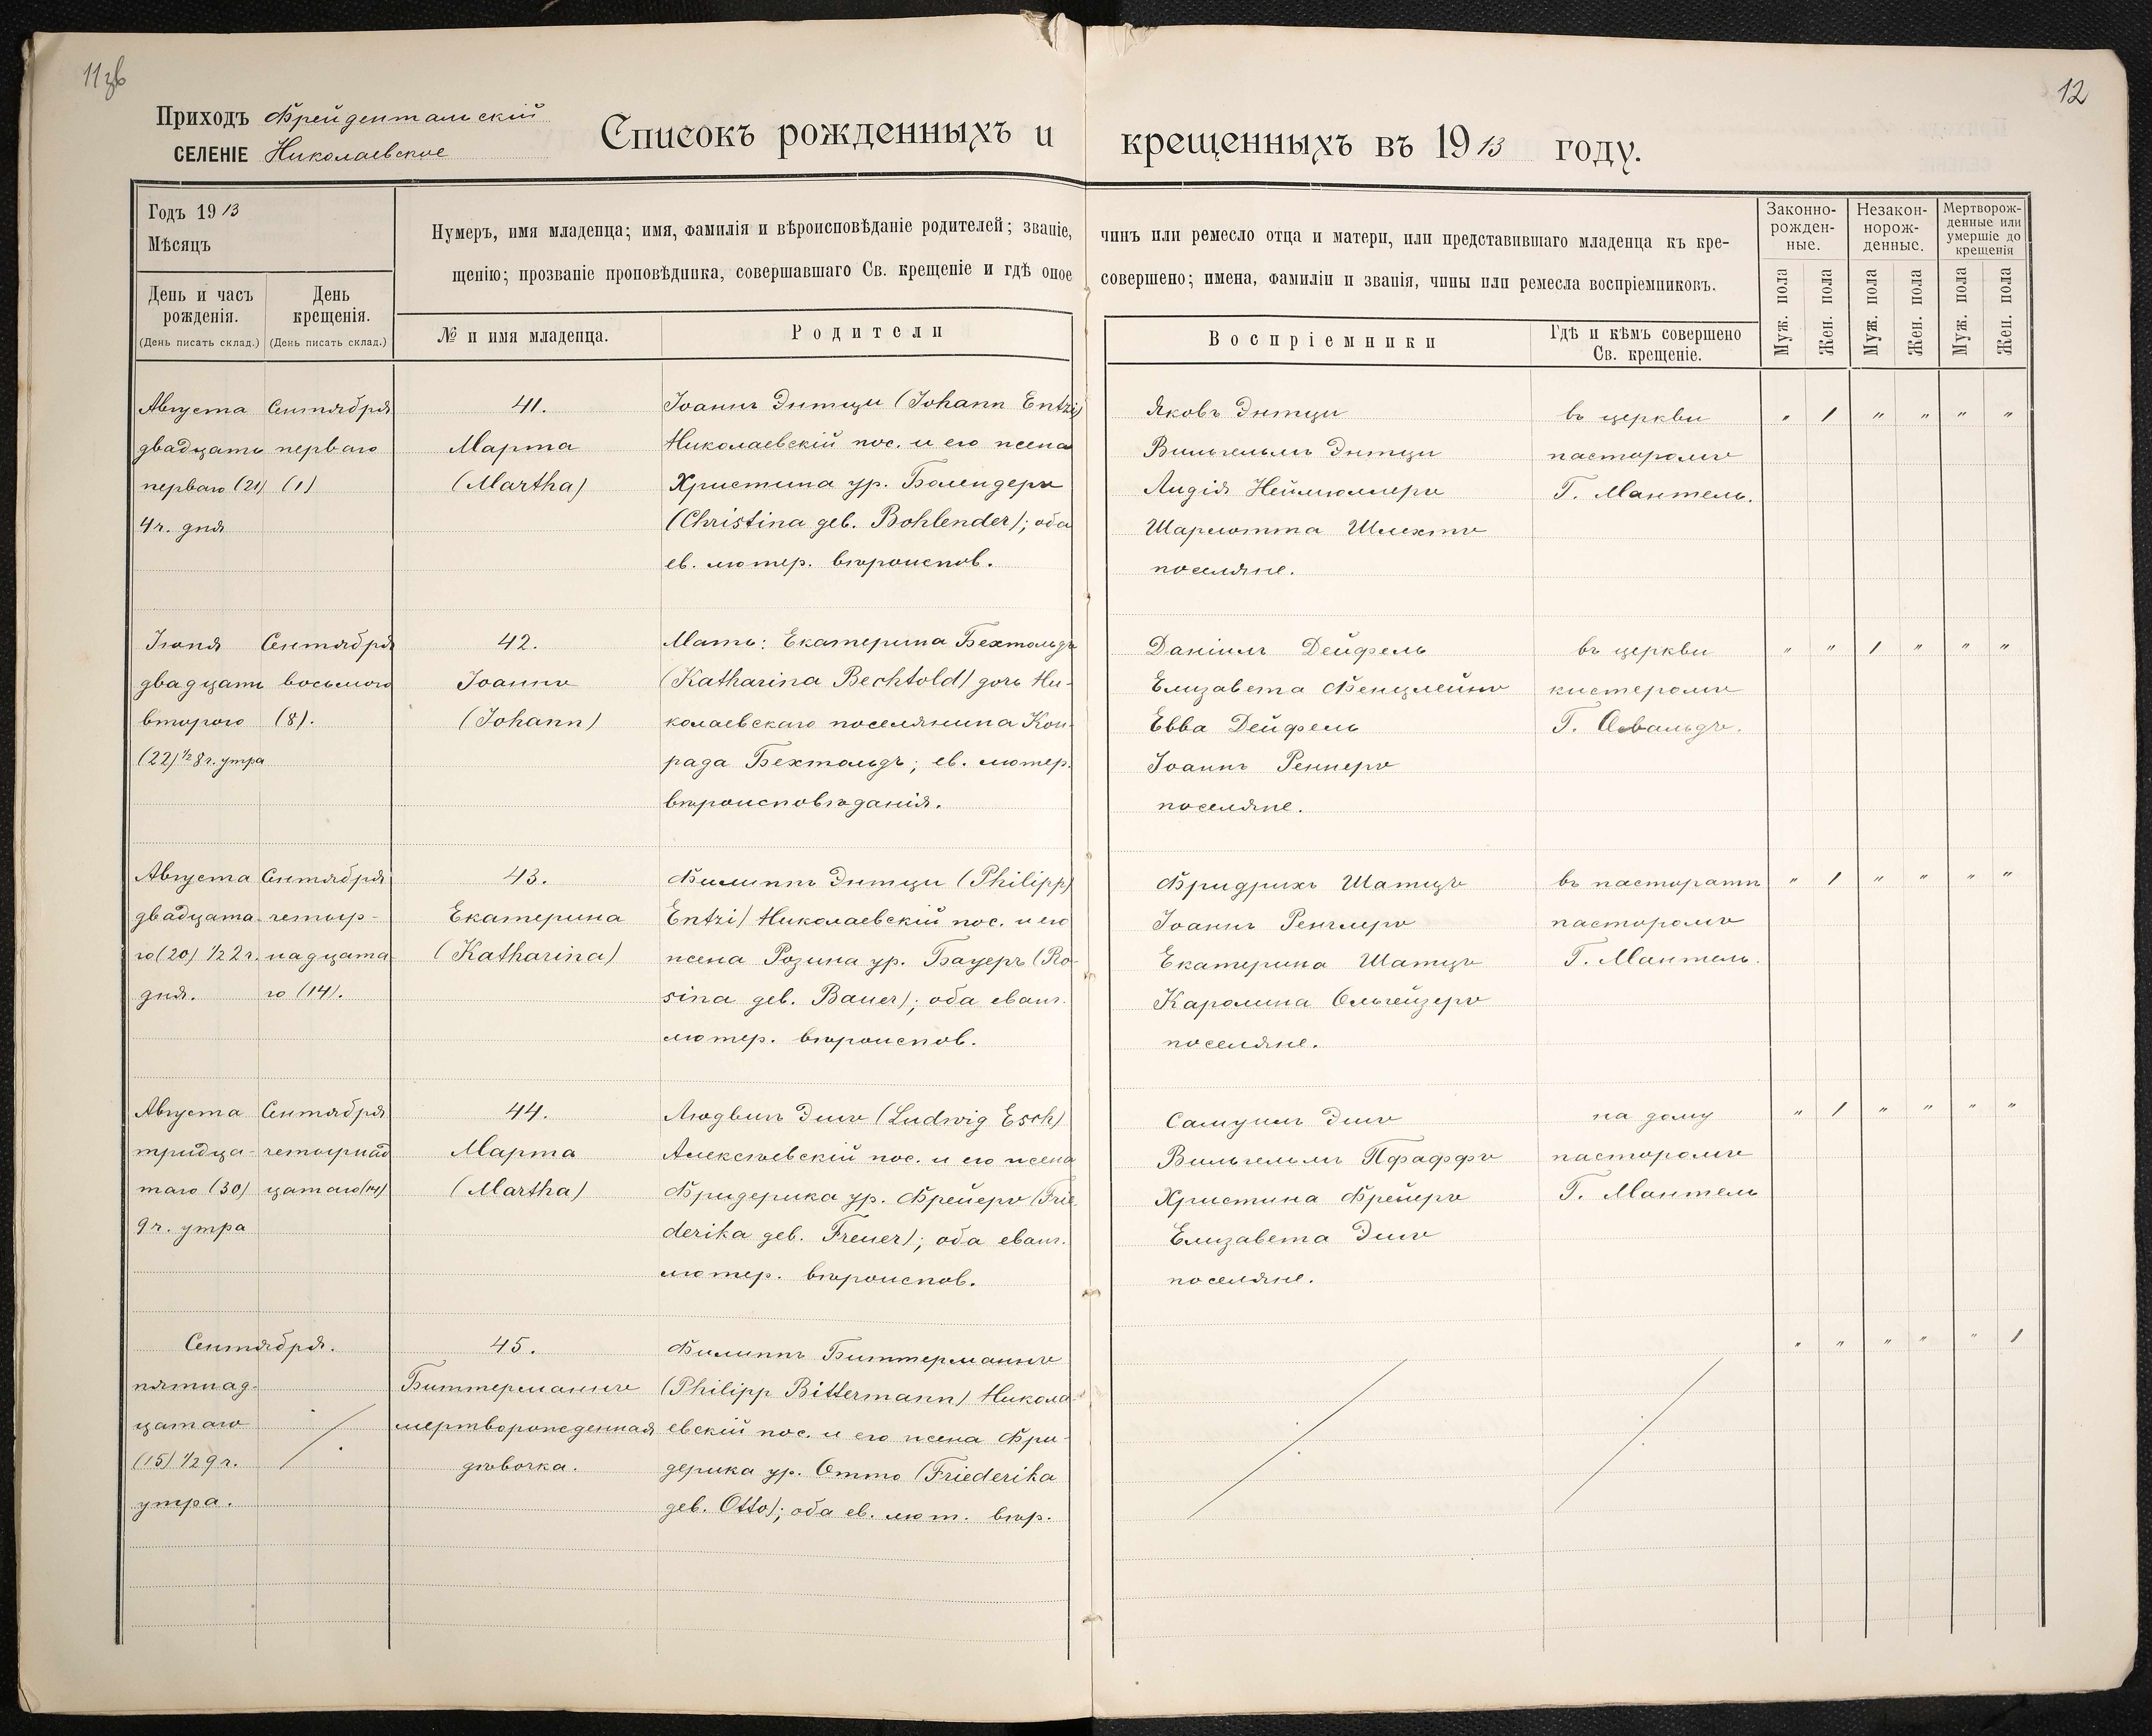 11зв
12
Приходъ Фрейдентальскій
СЕЛЕНІЕ Николаевское
Списокъ рожденныхъ и крещенныхъ въ 1913 году.
Годъ 1913
Мѣсяцъ
День и часъ рожденія.
(День писать склад.)
День крещенія.
(День писать склад.)
Нумеръ, имя младенца; имя, фамилія и вѣроисповѣданіе родителей; званіе, чинъ или ремесло отца и матери, или представившаго младенца къ кре-
щенію; прозваніе проповѣдника, совершавшаго Св. крещеніе и гдѣ оное совершено; имена, фамиліи и званія, чины или ремесла воспріемниковъ.
№ и имя младенца.
Родители
Воспріемники
Гдѣ и кѣмъ совершено
Св. крещеніе.
Законно-
рожден-
ные.
Незакон-
норож-
денные.
Мертворож-
денные или
умершіе до
крещенія
Муж. пола
Жен. пола
Муж. пола
Жен. пола
Муж. пола
Жен. пола
Августа
двадцать
перваго (21)
4 ч. дня
Сентября
перваго
(1)
41.
Марта
(Martha)
Іоаннъ Энтци (Johann Entzi)
Николаевскій пос. и его жена
Христина ур. Болендеръ
(Christina geb. Bohlender); оба
ев. лютер. вѣроиспов.
Яковъ Энтци
Вильгельмъ Энтци
Лидія Неймюллеръ
Шарлотта Шлехтъ
поселяне.
въ церкви
пасторомъ
Г. Мантель.
" 1 " " " "
Іюня
двадцать
второго
(22) ½ 8 ч. утра
Сентября
восьмого
(8).
42.
Іоаннъ
(Johann)
Мать: Екатерина Бехтольдъ
(Katharina Bechtold) дочь Ни-
колаевскаго поселянина Кон-
рада Бехтольдъ; ев. лютер.
вѣроисповѣданія.
Даніилъ Дейфель
Елизавета Венцлейнъ
Евва Дейфель
Іоаннъ Реннеръ
поселяне.
въ церкви
кистеромъ
Г. Освальдъ.
" " 1 " " "
Августа
двадцата-
го (20) ½ 2 ч.
дня.
Сентября
четыр-
надцата-
го (14).
43.
Екатерина
(Katharina)
Филиппъ Энтци (Philipp
Entzi) Николаевскій пос. и его
жена Розина ур. Бауеръ (Ro-
sina geb. Bauer); оба еванг.
лютер. вѣроиспов.
Фридрихъ Шатцъ
Іоаннъ
Екатерина Шатцъ
Каролина
поселяне.
въ пасторатѣ
пасторомъ
Г. Мантель.
" 1 " " " "
Августа
тридца-
таго (30)
9 ч. утра
Сентября
четырнад
цатаго (14)
44.
Марта
(Martha)
Людвигъ Эшъ (Ludwig Esch)
Алексѣевскій пос. и его жена
Фридерика ур. Фрейеръ (Frie-
derika geb. Freuer); оба еванг.
лютер. вѣроиспов.
Самуилъ Эшъ
Вильгельмъ Пфаффъ
Христина Фрейеръ
Елизавета Эшъ
поселяне.
на дому
пасторомъ
Г. Мантель
" 1 " " " "
Сентября.
пятнад-
цатаго
(15) ½ 9 ч.
утра.
45.
Биттерманнъ
мертворожденная
дѣвочка.
Филиппъ Биттерманнъ
(Philipp Bittermann) Никола-
евскій пос. и его жена Фри-
дерика ур. Отто (Friederika
geb. Otto); оба ев. лют. вѣр.
" " " " " 1